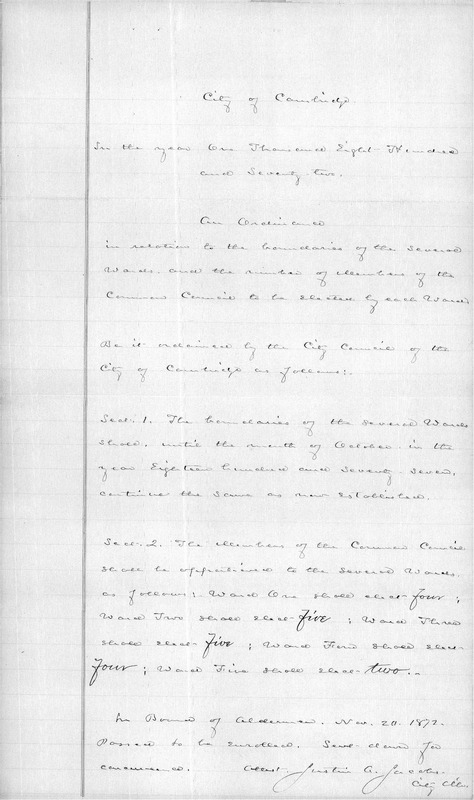 City of Cambridge
In the year One Thousand Eight Hundred
and Seventy two.
An Ordinance
in relation to the boundaries of the several
Wards and the number of Members of the
Common Council to be elected by each Ward
Be it ordained by the City Council of the
City of Cambridge as follows:-
Sect. 1. The boundaries of the several Wards
shall, until the month of October in the
year Eighteen hundred and Seventy Seven,
continue the same as now established.
Sect. 2. The Members of the Common Council
shall be apportioned to the several Wards
as follows:- Ward One shall elect four;
Ward Two shall elect Five; Ward Three
shall elect Five; Ward Four shall elect
Four; Ward Five shall elect two.-
In Board of Aldermen. Nov. 20. 1872.
Passed to be Enrolled. Sent down for
concurrence. Attest Justin A. Jacobs.
City Clk.